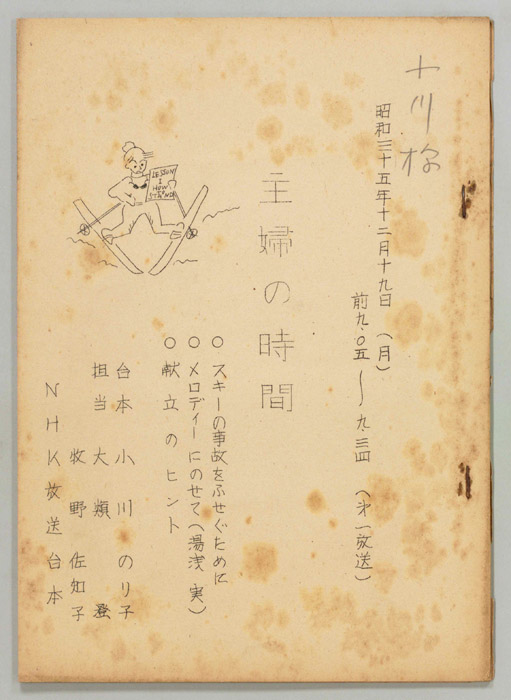 小川様
昭和三十五年十二月十九日（月）
前九・〇五〜九・三四（第一放送）
主婦の時間
LESSON
1
HOW
TO
STAND
○スキーの事故をふせぐために
○メロディーにのせて（湯浅 実）
○献立のヒント
台本 小川 のり子
担当 大類 登
牧野 佐知子
NHK放送台本